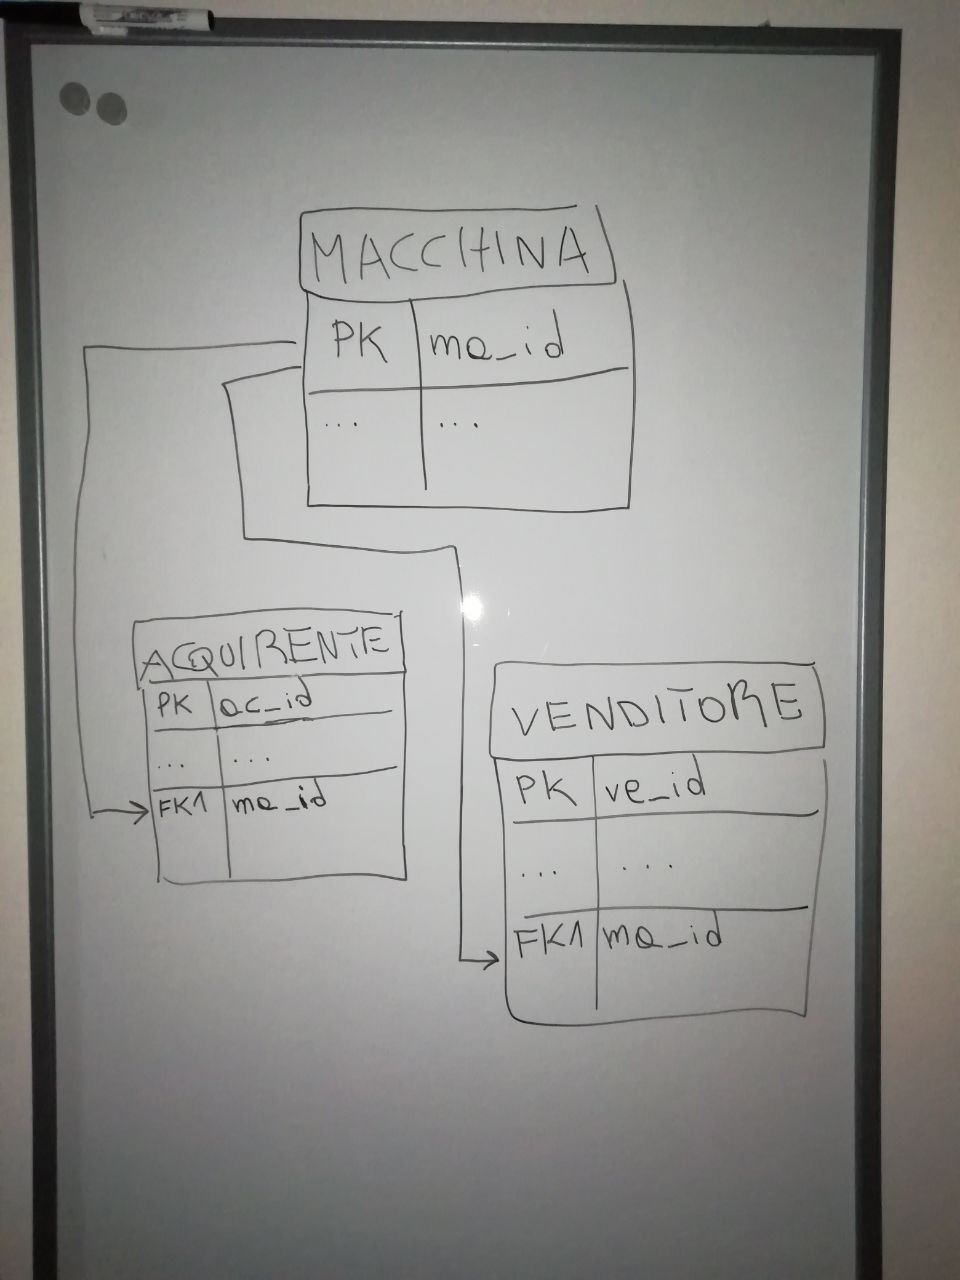 MACCHINA
PK ma_id
... ...
ACQUIRENTE
PK ac_id
... ...
FK1 ma_id
VENDITORE
PK ve_id
... ...
FK1 ma_id